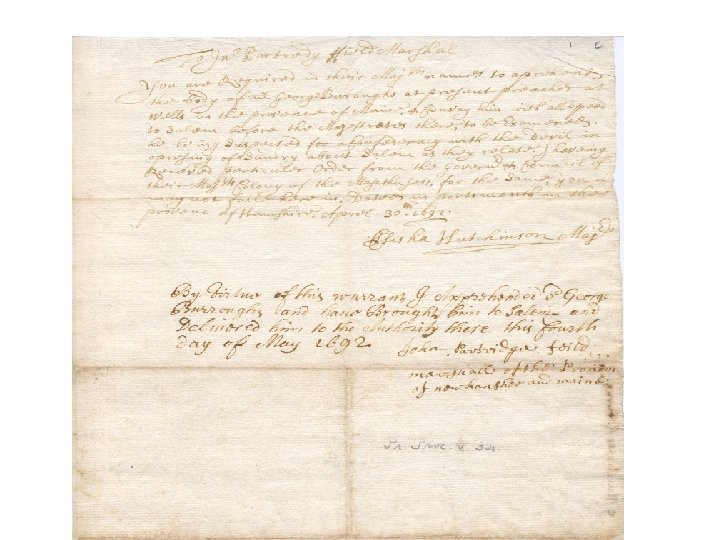 To Jno Partredg ffield Marshal
You are Required in their Majsts names to aprehend
the body of mr George Buroughs at present preacher at
Wells in the provence of Maine, & Convay him with all Speed
to Salem before the Magestrates there, to be Examened,
he being Suspected for a Confederacy with the devil in
opressing of Sundry about Salem as they relate. I having
Receved perticuler Order from the Governr & Council of
their Majsts Colony of the Masathusets, for the Same, you
may not faile herein, Dated in portsmouth in the
provenc of Hamshire, Aprel. 30th 1692.
Elisha Hutchinson Majr
By Virtue of this warrant I Apprehended sd George
Burroughs and have Brought him to Salem and
Delivered him to the Authority there this fourth
day of May 1692 John Partridge feild
marshall of the Provinc
of newhansher and maine
1 2
34.